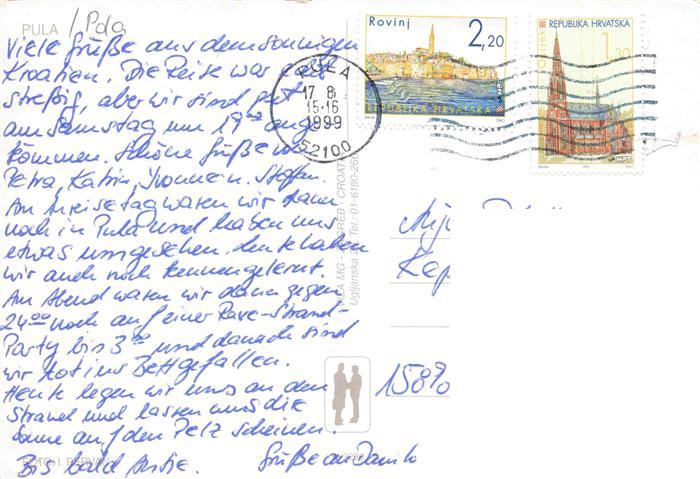 PULA / Pola
Viele Grüße aus dem sonnigen
Kroatien. Die Reise war echt
streßig, aber wir sind gut
am Samstag um 19⁰⁰ ange
kommen. Schöne Grüße von
Petra, Katrin, Yvonne u. Steffen.
Am Anreisetag waren wir dann
noch in Pula und haben uns
etwas umgesehen. Leute haben
wir auch noch kennengelernt.
Am Abend waren wir dann gegen
24⁰⁰ noch auf einer Rave-Strand-
Party bis 3⁰⁰ und danach sind
wir tot ins Bett gefallen.
Heute legen wir uns an den
Strand und lassen uns die
Sonne auf den Pelz scheinen.
Bis bald Antje. Grüße an Danilo
Rovinj
2,20
REPUBLIKA HRVATSKA
REPUBLIKA HRVATSKA
1,30
Osijek
HPT
PULA
17 8
15-16
1999
52100
MG - ZAGREB - CROATIA
Ugljanska Tel.: 01-6180-
Kap
1580
FOTO: I. PERVAN